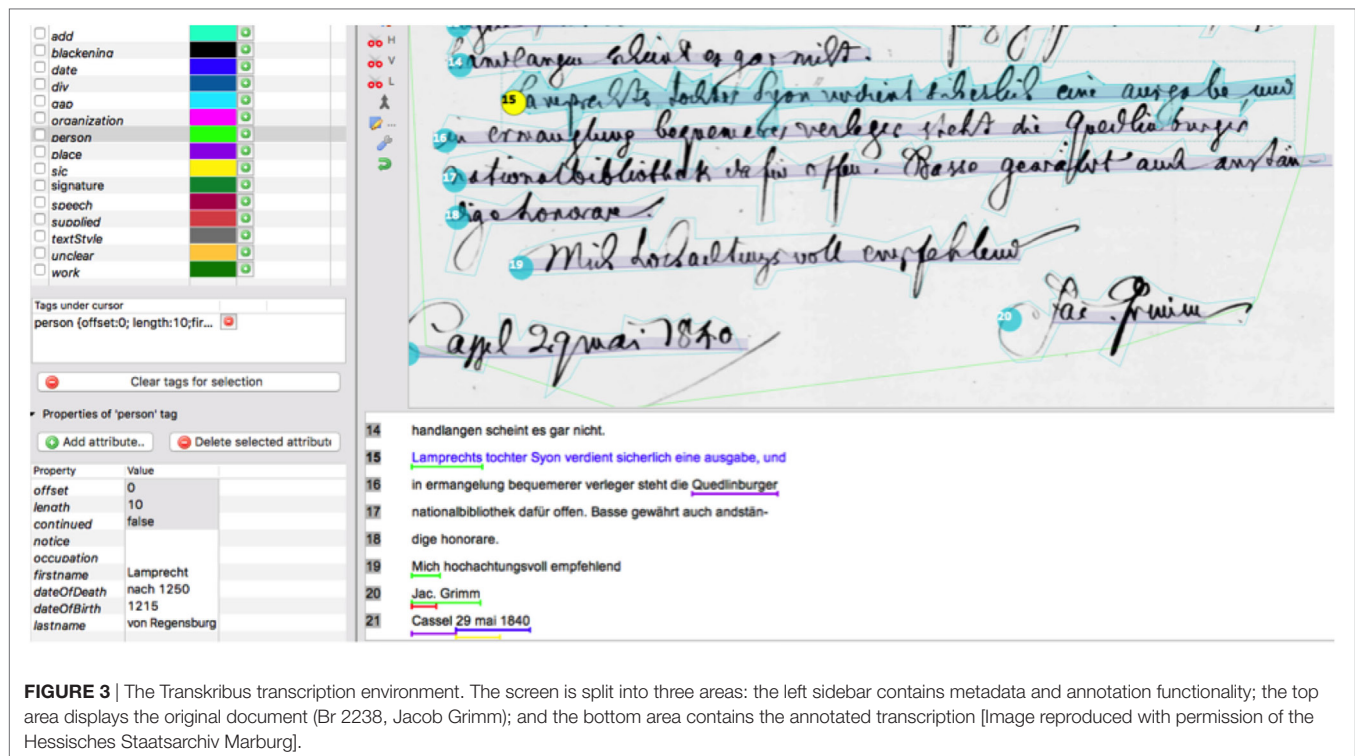 add
blackening
date
div
gap
organization
person
place
sic
signature
speech
supplied
textStyle
unclear
work
Tags under cursor
person {offset:0; length:10;fir...
Clear tags for selection
Properties of 'person' tag
Add attribute..
Delete selected attribute
Property Value
offset 0
length 10
continued false
notice
occupation
firstname Lamprecht
dateOfDeath nach 1250
dateOfBirth 1215
lastname von Regensburg
H
V
L
...
14 handlangen scheint es gar nicht.
15 Lamprechts tochter Syon verdient sicherlich eine ausgabe, und
16 in ermanglung bequemerer verleger steht die Quedlinburger
17 nationalbibliothek dafür offen. Basse gewährt auch anstän-
18 dige honorare.
19 Mich hochachtungsvoll empfehlend
20 Jac. Grimm
Cassel 29 mai 1840
14 handlangen scheint es gar nicht.
15 Lamprechts tochter Syon verdient sicherlich eine ausgabe, und
16 in ermangelung bequemerer verleger steht die Quedlinburger
17 nationalbibliothek dafür offen. Basse gewährt auch andstän-
18 dige honorare.
19 Mich hochachtungsvoll empfehlend
20 Jac. Grimm
21 Cassel 29 mai 1840
FIGURE 3 | The Transkribus transcription environment. The screen is split into three areas: the left sidebar contains metadata and annotation functionality; the top
area displays the original document (Br 2238, Jacob Grimm); and the bottom area contains the annotated transcription [Image reproduced with permission of the
Hessisches Staatsarchiv Marburg].